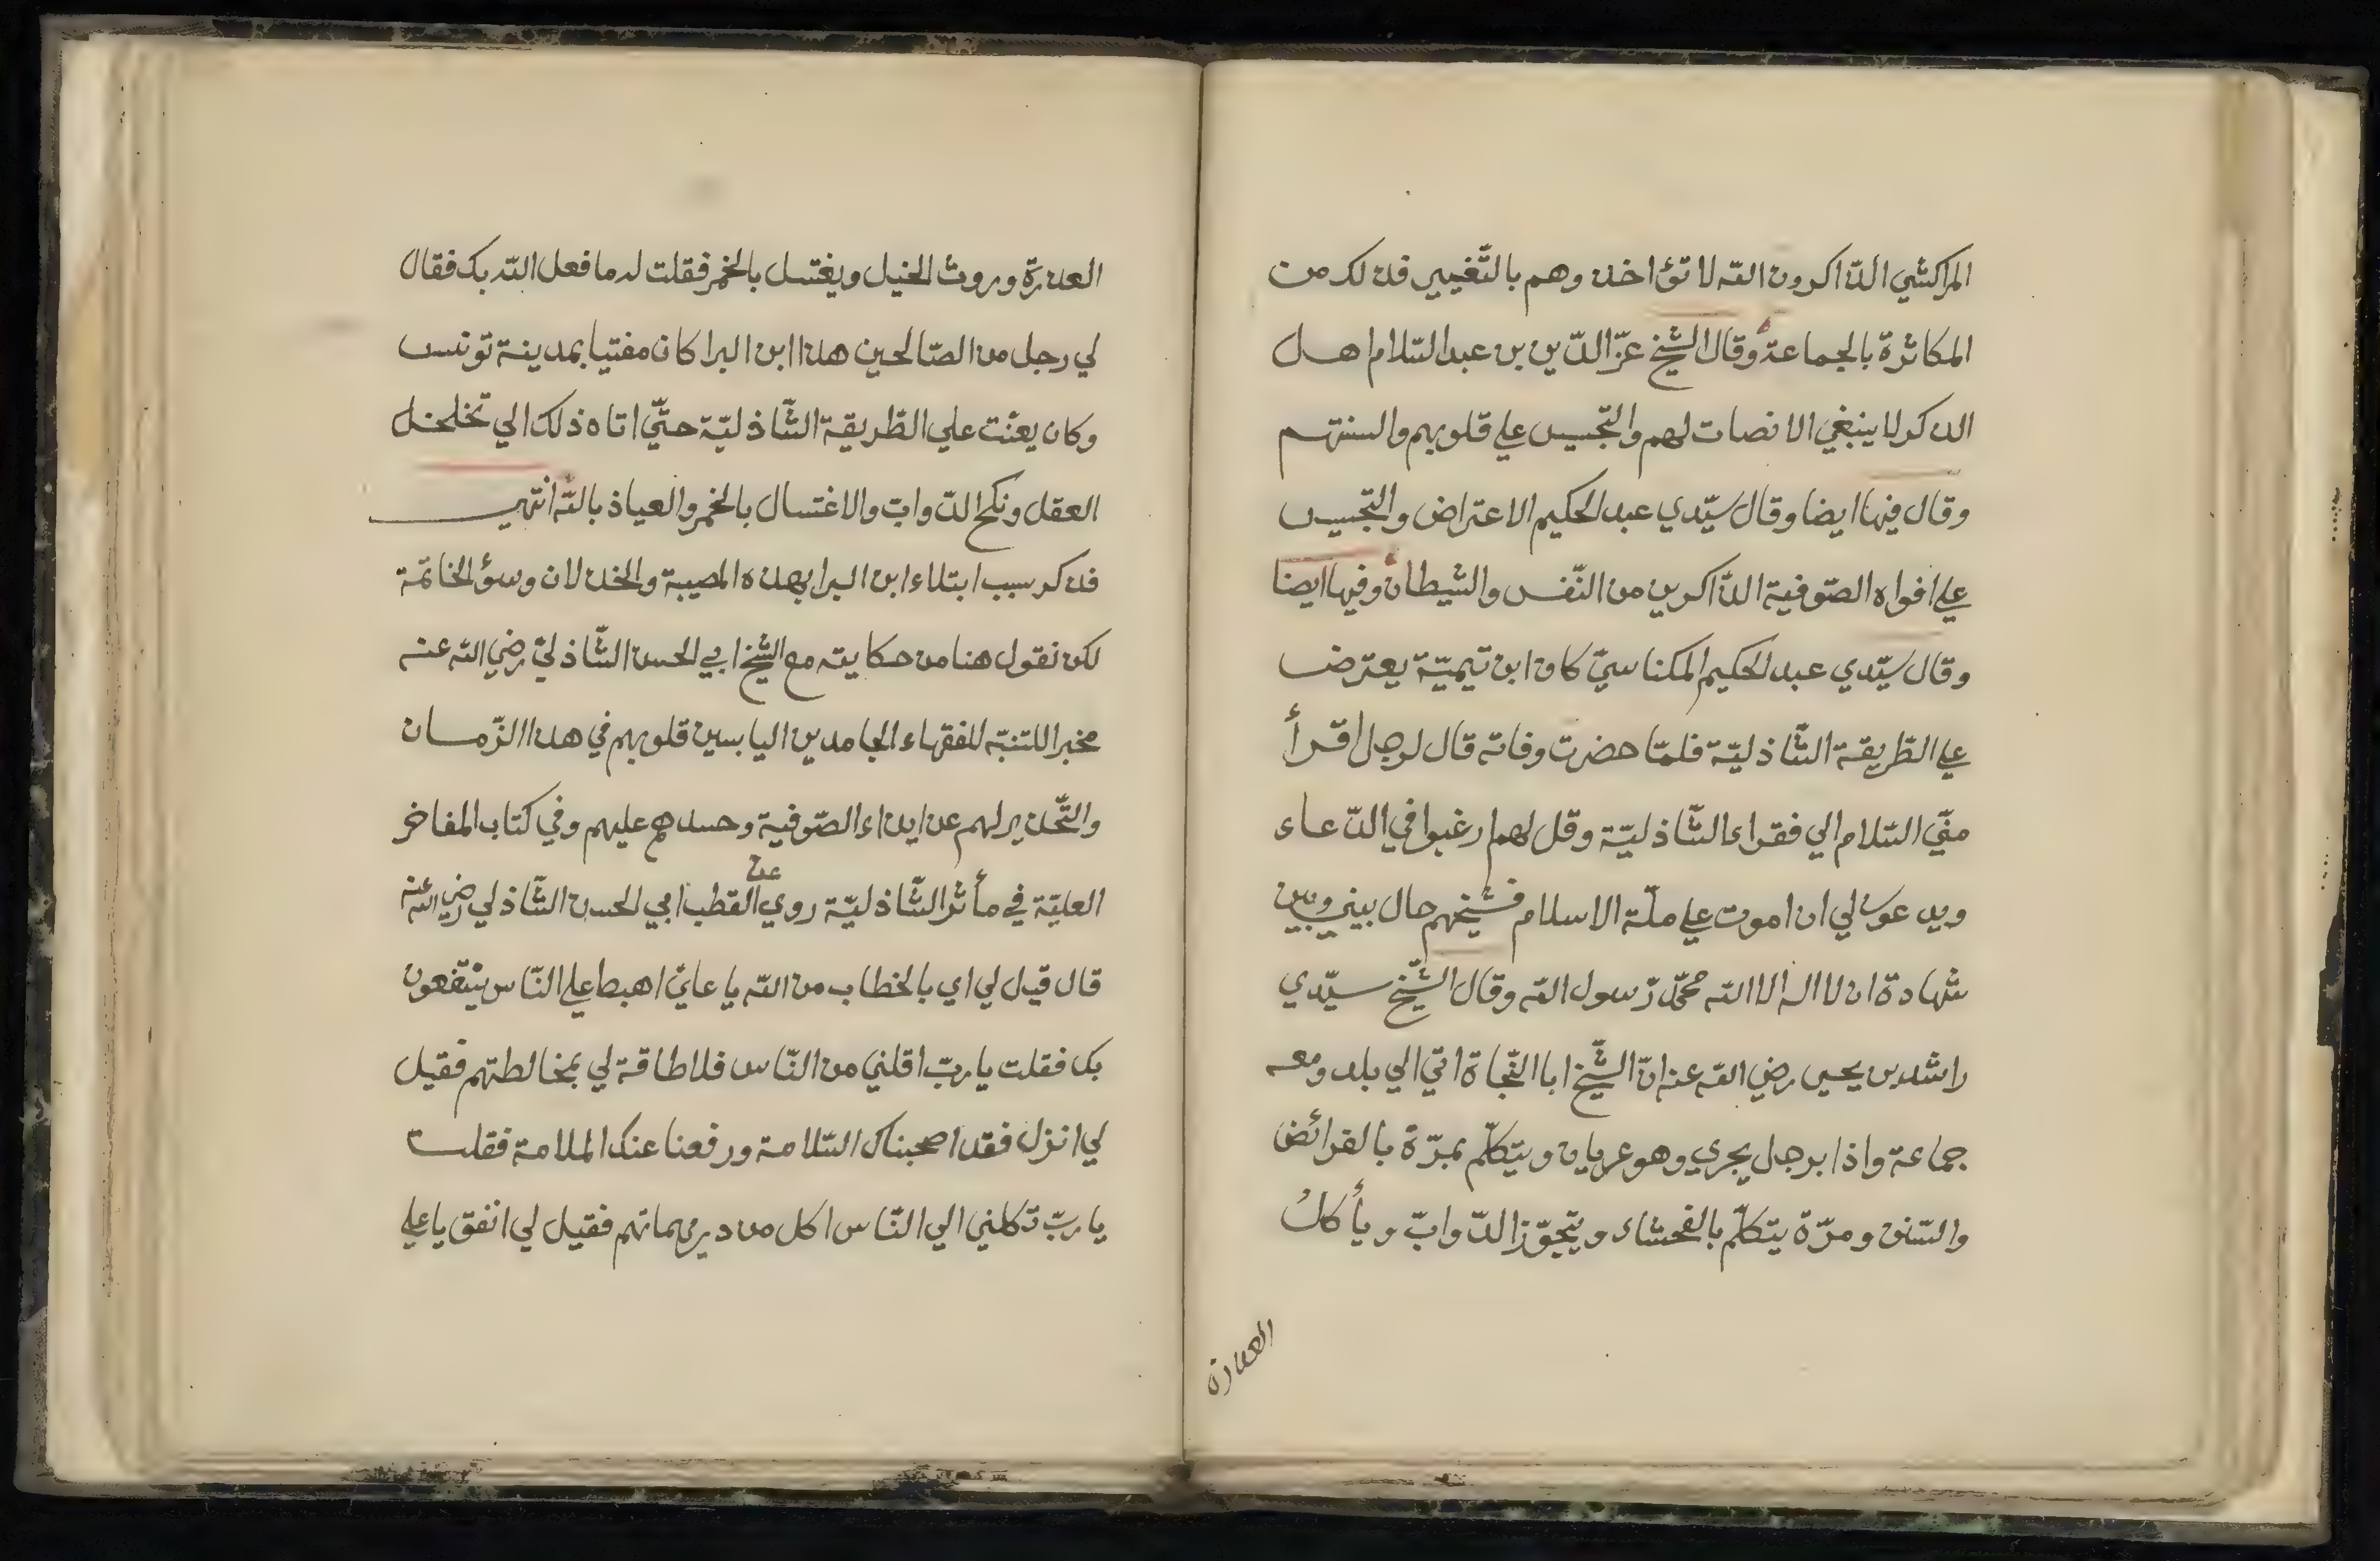 المراكشي الذّاكرون الله لا تؤاخذوهم بالتّغيير فذلك من
المكاثرة بالجماعة وقال الشيخ عزّ الدّين بن عبد السّلام هل
الذكر لا ينبغي الانصات لهم والتّجسيس علي قلوبهم والسنتهم
وقال فيها ايضا وقال سيّدي عبد الحكيم الاعتراض والتّجسيس
علي افواه الصّوفية الذّاكرين من النّفس والشيطان وفيها ايضا
وقال سيّدي عبد الحكيم المكناسيّ كان ابن تيميّة يعترض
علي الطّريقة الشّاذليّة فلمّا حضرت وفاته قال لرجل اقرأ
منّي السّلام الي فقراء الشّاذليّة وقل لهم ارغبوا في الدّعاء
ويدعون لي ان اموت علي ملّة الاسلام فشيخهم حال بيني وبين
شهادة ان لا اله الا الله محمّد رّسول الله وقال الشّيخ سيّدي
راشد بن يحيى رضي الله عنه انّ الشّيخ ابا النّجاة اتي الي بلد ومعه
جماعة واذا برجل يجري وهو عريان ويتكلّم بمرّة بالفرائض
والسّنن ومرّة يتكلّم بالفحشاء ويتجوّز الدّوابّ ويأكلُ
العذرة
العذرة وروث الخيل ويغتسل بالخمر فقلت له ما فعل الله بك فقال
لي رجل من الصّالحين هذا ابن البرا كان مفتيا بمدينة تونس
وكان يعنّت علي الطّريقة الشّاذليّة حتّي اتاه ذلك الي تخلخل
العقل ونكح الدّوابّ والاغتسال بالخمر والعياذ بالله انتهي
فذكر سبب ابتلاء ابن البرا بهذه المصيبة والخذلان وسؤ الخاتمة
لكن نقول هنا من حكايته مع الشيخ ابي الحسن الشّاذليّ رضي الله عنه
مخبرا للتنبّه للفقهاء الجامدين اليابسين قلوبهم في هذا الزّمان
والتّحذير لهم عن ايذاء الصّوفية وحسدهم عليهم وفي كتاب المفاخر
العليّة في مأثر الشّاذليّة روي عن القطب ابي الحسن الشّاذلي رضي الله عنه
قال قيل لي اي بالخطاب من الله يا عليّ اهبط علي النّاس ينتفعون
بك فقلت يا ربّ اقلني من النّاس فلا طاقة لي بمخالطتهم فقيل
لي انزل فقد اصحبناك السّلامة ورفعنا عنك الملامة فقلت
يا ربّ تكلني الي النّاس اكل من دريهماتهم فقيل لي انفق يا علي